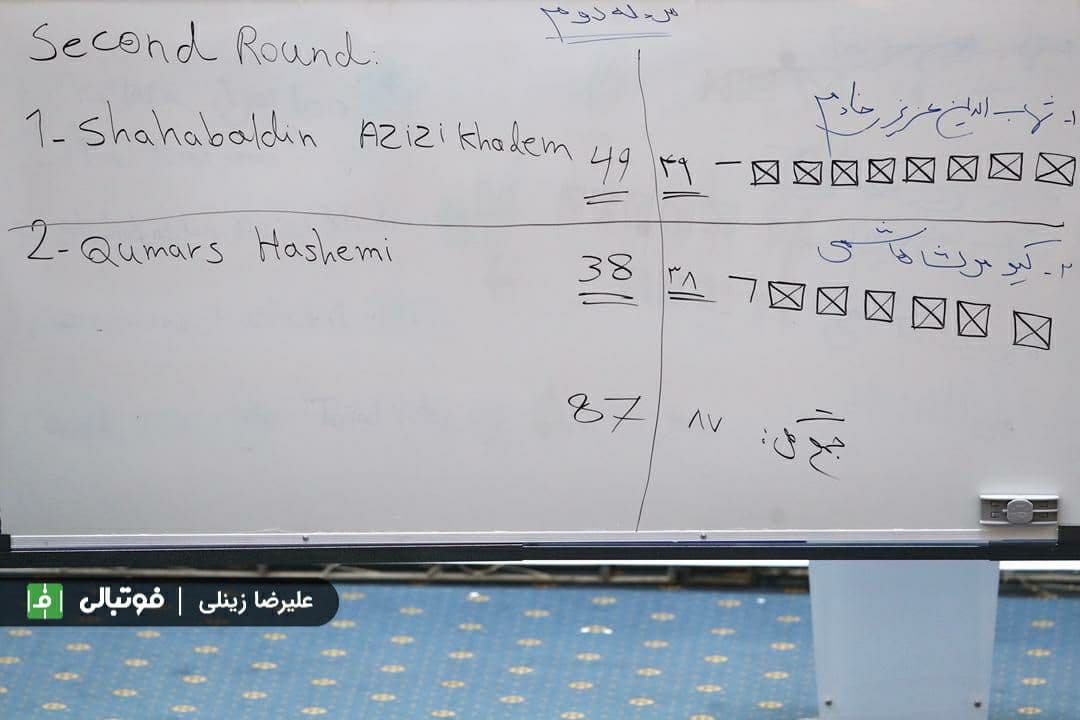 Second Round:
مرحله دوم
1- Shahabaldin Azizi Khadem 49
۴۹ ۱- شهاب الدین عزیزی خادم
2- Qumars Hashemi 38
۳۸ ۲- کیومرث هاشمی
87
جمع کل: ۸۷
فوتبالی | علیرضا زینلی